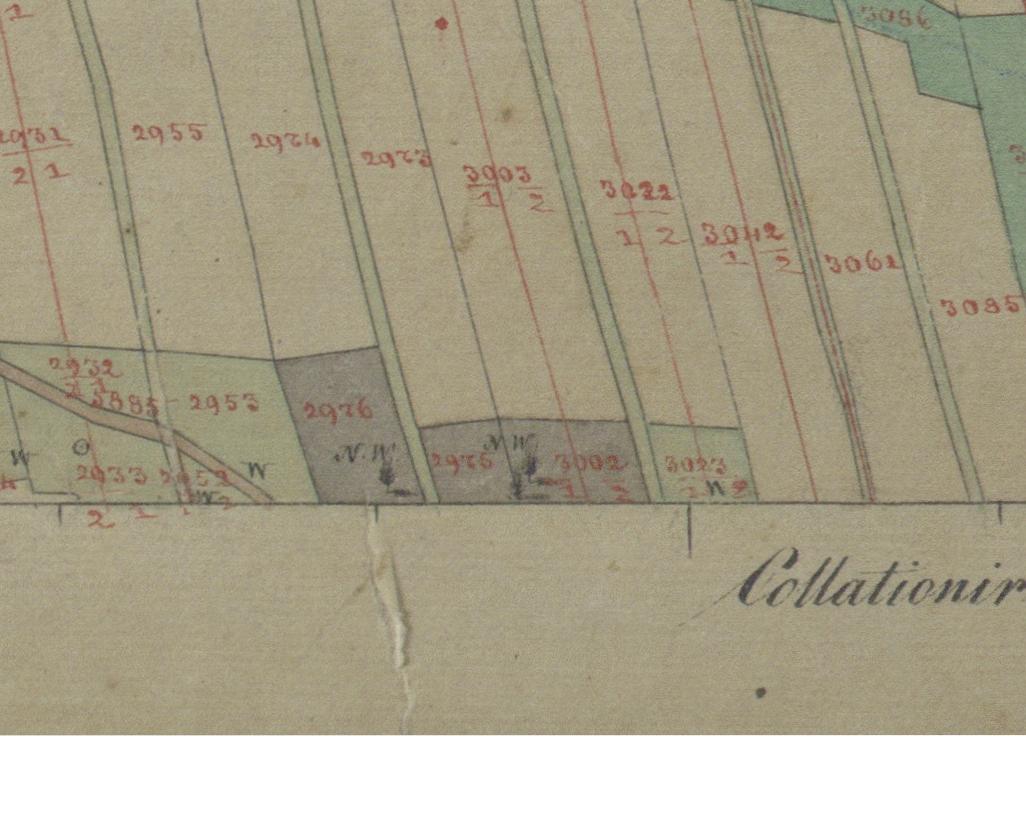 1
3086
2931
2 1
2955
2974
2973
3003
1 2
3022
1 2
3042
1 2
3061
3085
2932
2 1
3885
2953
2976
N.W.
2975
N W
3002
1 2
3023
1 2
W
W
O
2933
2 1
2952
1 2
W
W
Collationir